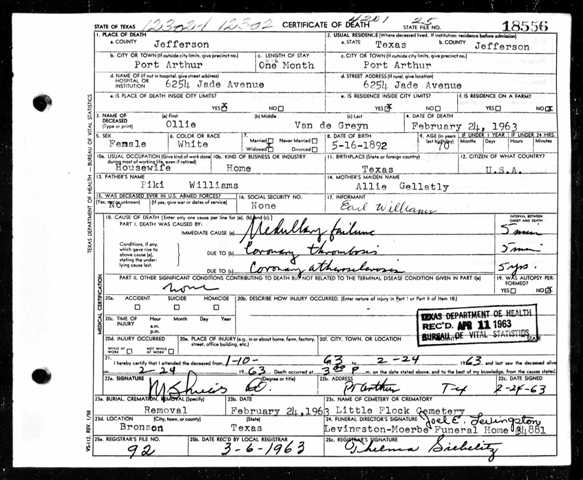 STATE OF TEXAS
CERTIFICATE OF DEATH
STATE FILE NO. 18556
1. PLACE OF DEATH
a. COUNTY Jefferson
2. USUAL RESIDENCE (Where deceased lived. If institution: residence before admission)
a. STATE Texas b. COUNTY Jefferson
b. CITY OR TOWN (If outside city limits, give precinct no.) Port Arthur
c. LENGTH OF STAY One Month
c. CITY OR TOWN (If outside city limits, give precinct no.) Port Arthur
d. NAME OF (If not in hospital, give street address) HOSPITAL OR INSTITUTION 6254 Jade Avenue
d. STREET ADDRESS (If rural, give location) 6254 Jade Avenue
e. IS PLACE OF DEATH INSIDE CITY LIMITS? YES NO
e. IS RESIDENCE INSIDE CITY LIMITS? YES NO
f. IS RESIDENCE ON A FARM? YES NO
3. NAME OF DECEASED (Type or print)
(a) First Ollie (b) Middle (c) Last Van de Greyn
4. DATE OF DEATH February 24, 1963
5. SEX Female
6. COLOR OR RACE White
7. Married Never Married Widowed Divorced
8. DATE OF BIRTH 5-16-1892
9. AGE (In years 70
IF UNDER 1 YEAR Months Days
IF UNDER 24 HRS. Hours Min.
10a. USUAL OCCUPATION (Give kind of work done during most of working life, even if retired) Housewife
10b. KIND OF BUSINESS OR INDUSTRY Home
11. BIRTHPLACE (State or foreign country) Texas
12. CITIZEN OF WHAT COUNTRY? U.S.A.
13. FATHER'S NAME Piki Williams
14. MOTHER'S MAIDEN NAME Allie Gellatly
15. WAS DECEASED EVER IN U.S. ARMED FORCES? (If yes, give war or dates of service) No
16. SOCIAL SECURITY NO. None
17. INFORMANT Earl Williams
18. CAUSE OF DEATH [Enter only one cause per line for (a), (b), and (c).]
INTERVAL BETWEEN ONSET AND DEATH
PART I. DEATH WAS CAUSED BY:
IMMEDIATE CAUSE (a) Medullary failure 5 min
Conditions, if any, which gave rise to above cause (a), stating the underlying cause last.
DUE TO (b) Coronary thrombosis 5 min
DUE TO (c) Coronary atherosclerosis 5 yrs.
PART II. OTHER SIGNIFICANT CONDITIONS CONTRIBUTING TO DEATH BUT NOT RELATED TO THE TERMINAL DISEASE CONDITION GIVEN IN PART I(a)
none
19. WAS AUTOPSY PERFORMED? YES NO
20a. ACCIDENT SUICIDE HOMICIDE
20b. DESCRIBE HOW INJURY OCCURRED. (Enter nature of injury in Part I or Part II of item 18.)
20c. TIME OF INJURY Hour a.m. p.m. Month Day Year
TEXAS DEPARTMENT OF HEALTH
REC'D. APR 11 1963
BUREAU OF VITAL STATISTICS
20d. INJURY OCCURRED WHILE AT WORK NOT WHILE AT WORK
20e. PLACE OF INJURY (e.g., in or about home, farm, factory, street, office building, etc.)
20f. CITY, TOWN, OR LOCATION
21. I hereby certify that I attended the deceased from 1-10- 63 to 2-24 1963 and last saw the deceased alive
2-24 1963. Death occurred at m. on the date stated above, and to the best of my knowledge, from the causes stated.
22a. SIGNATURE (Degree or title)
22b. ADDRESS
22c. DATE SIGNED 2-24-63
23a. BURIAL, CREMATION, REMOVAL (Specify) Removal
23b. DATE February 24, 1963
23c. NAME OF CEMETERY OR CREMATORY Little Flock Cemetery
23d. LOCATION (City, town, or county) (State) Bronson Texas
24. FUNERAL DIRECTOR'S SIGNATURE Joel E. Levingston
Levingston-Moerbe Funeral Home
25a. REGISTRAR'S FILE NO. 92
25b. DATE REC'D BY LOCAL REGISTRAR 3-6-1963
25c. REGISTRAR'S SIGNATURE Thelma
TEXAS DEPARTMENT OF HEALTH — BUREAU OF VITAL STATISTICS
MEDICAL CERTIFICATION